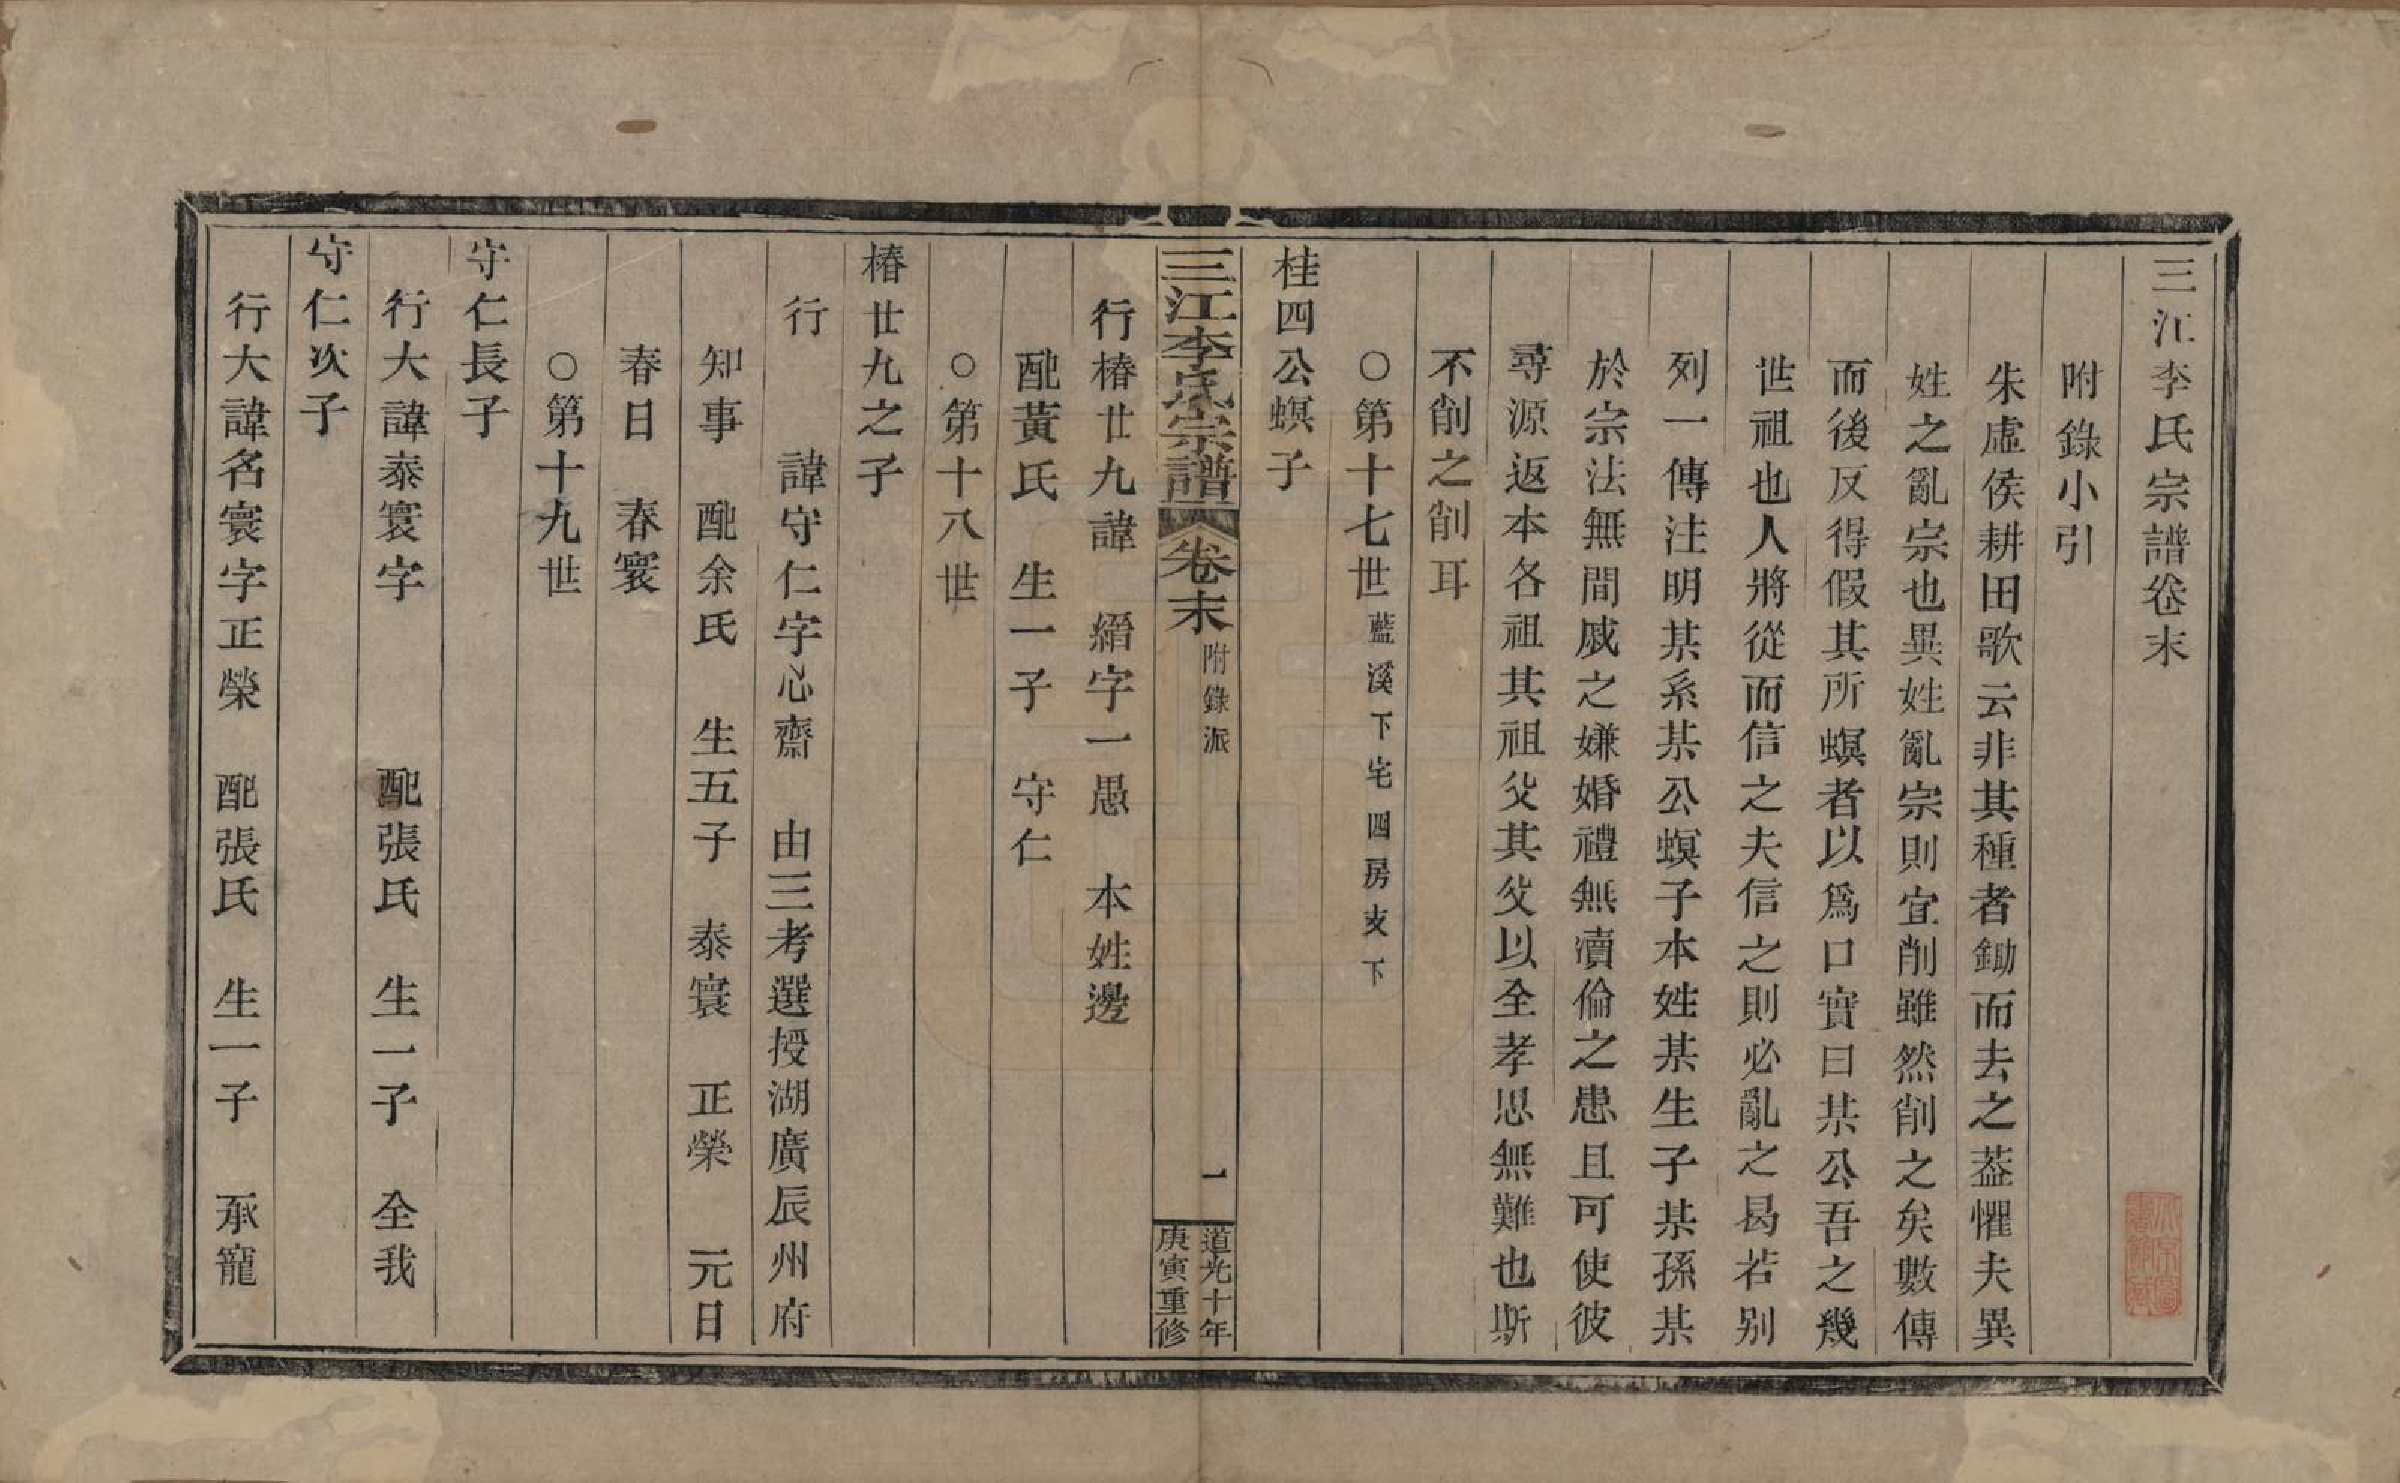 三江李氏宗譜卷末
附錄小引
朱虛侯耕田歌云非其種者鋤而去之葢懼夫異
姓之亂宗也異姓亂宗則宜削雖然削之矣數傳
而後反得假其所螟者以爲口實曰某公吾之幾
世祖也人將從而信之夫信之則必亂之曷若别
列一傳注明某系某公螟子本姓某生子某孫某
於宗法無間戚之嫌婚禮無瀆倫之患且可使彼
尋源返本各祖其祖父其父以全孝思無難也斯
不削之削耳
○第十七世藍溪下宅四房支下
桂四公螟子
三江李氏宗譜 卷末 附錄派 一 道光十年庚寅重修
行椿廿九諱 縉字一愚 本姓邊
配黃氏 生一子 守仁
○第十八世
椿廿九之子
行 諱守仁字心齋 由三考選授湖廣辰州府
知事 配余氏 生五子 泰寰 正榮 元日
春日 春寰
○第十九世
守仁長子
行大諱泰寰字 配張氏 生一子 全我
守仁次子
行大諱名寰字正榮 配張氏 生一子 承寵